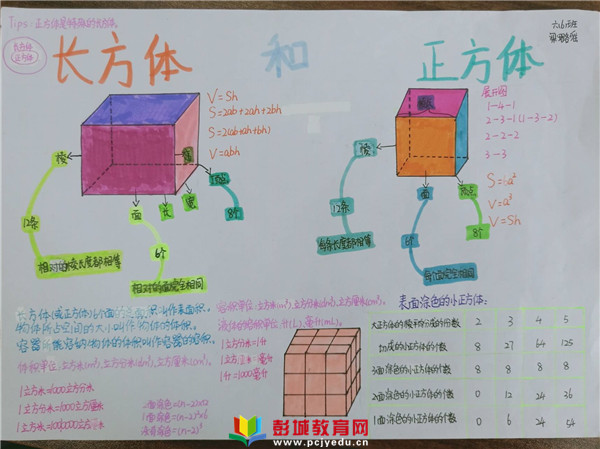 Tips:正方体是特殊的长方体。
长方体
正方体
六(6)班
长方体 和 正方体
V=Sh
S=2ab+2ah+2bh
S=2(ab+ah+bh)
V=abh
棱
12条
相对的棱长度都相等
面
6个
相对的面完全相同
长
宽
高
顶点
8个
展开图
1-4-1
2-3-1(1-3-2)
2-2-2
3-3
V=a³
V=Sh
棱
12条
每条长度都相等
面
6个
每个面完全相同
顶点
8个
长方体(或正方体)6个面的总面积,叫作表面积。
物体所占空间的大小叫作物体的体积。
容器所能容纳物体的体积叫作容器的容积。
体积单位:立方米(m³)、立方分米(dm³)、立方厘米(cm³)。
1立方米=1000立方分米
1立方分米=1000立方厘米
1立方米=1000000立方厘米
2面涂色=(n-2)×12
1面涂色=(n-2)²×6
没有涂色=(n-2)³
容积单位:立方米(m³)、立方分米(dm³)、立方厘米(cm³)。
液体的容积单位:升(L)、毫升(mL)。
1立方分米=1升
1立方厘米=1毫升
1升=1000毫升
表面涂色的小正方体:
大正方体的棱平均分成的份数 2 3 4 5
切成的小正方体的个数 8 27 64 125
3面涂色的小正方体的个数 8 8 8 8
2面涂色的小正方体的个数 0 12 24 36
1面涂色的小正方体的个数 0 6 24 54
彭城教育网
www.pcjyedu.cn